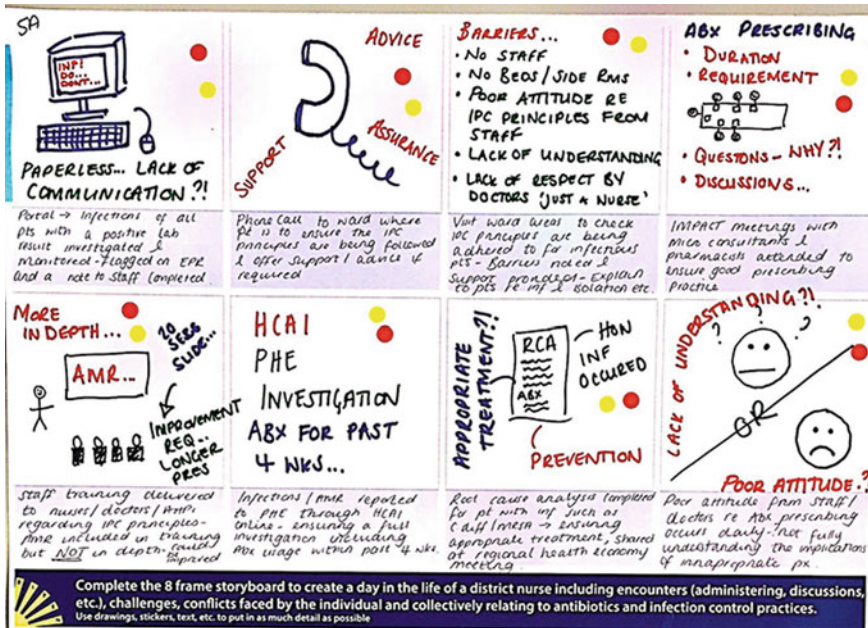 SA
INF!
DO...
DONT...
PAPERLESS... LACK OF
COMMUNICATION?!
Portal → Infections of all
pts with a positive lab
result investigated &
monitored - flagged on EPR
and a note to staff completed.
ADVICE
SUPPORT
ASSURANCE
Phone call to ward where
pt is to ensure the IPC
principles are being followed
& offer support / advice if
required
BARRIERS...
• NO STAFF
• NO BEDS / SIDE RMS
• POOR ATTITUDE RE
IPC PRINCIPLES FROM
STAFF
• LACK OF UNDERSTANDING
• LACK OF RESPECT BY
DOCTORS 'JUST A NURSE'
Visit ward areas to check
IPC principles are being
adhered to for infectious
pts - Barriers noted &
support - Explain
to pts re inf & isolation etc.
ABX PRESCRIBING
• DURATION
• REQUIREMENT
• QUESTONS - WHY?!
• DISCUSSIONS...
IMPACT meetings with
micro consultants &
pharmacists attended to
ensure good prescribing
practice
MORE
IN DEPTH...
20
SEBS
SLIDE...
AMR...
IMPROVEMENT
REQ...
LONGER
PRES
Staff training delivered
to nurses / doctors / AHPs
regarding IPC principles -
AMR included in training
but NOT in depth - could be
improved
HCAI
PHE
INVESTIGATION
ABX FOR PAST
4 WKS...
Infections / AMR reported
to PHE through HCAI
online - ensuring a full
investigation including
Abx usage within past 4 wks.
APPROPRIATE
TREATMENT?!
RCA
ABX
HOW
INF
OCCURED
PREVENTION
Root cause analysis completed
for pt with inf such as
Cdiff / MRSA → ensuring
appropriate treatment, shared
at regional health economy
meeting.
LACK OF UNDERSTANDING?!
? ? ?
OR
POOR ATTITUDE.?
Poor attitude from staff /
doctors re Abx prescribing
occurs daily - not fully
understanding the implications
of innapropriate px.
Complete the 8 frame storyboard to create a day in the life of a district nurse including encounters (administering, discussions,
etc.), challenges, conflicts faced by the individual and collectively relating to antibiotics and infection control practices.
Use drawings, stickers, text, etc. to put in as much detail as possible